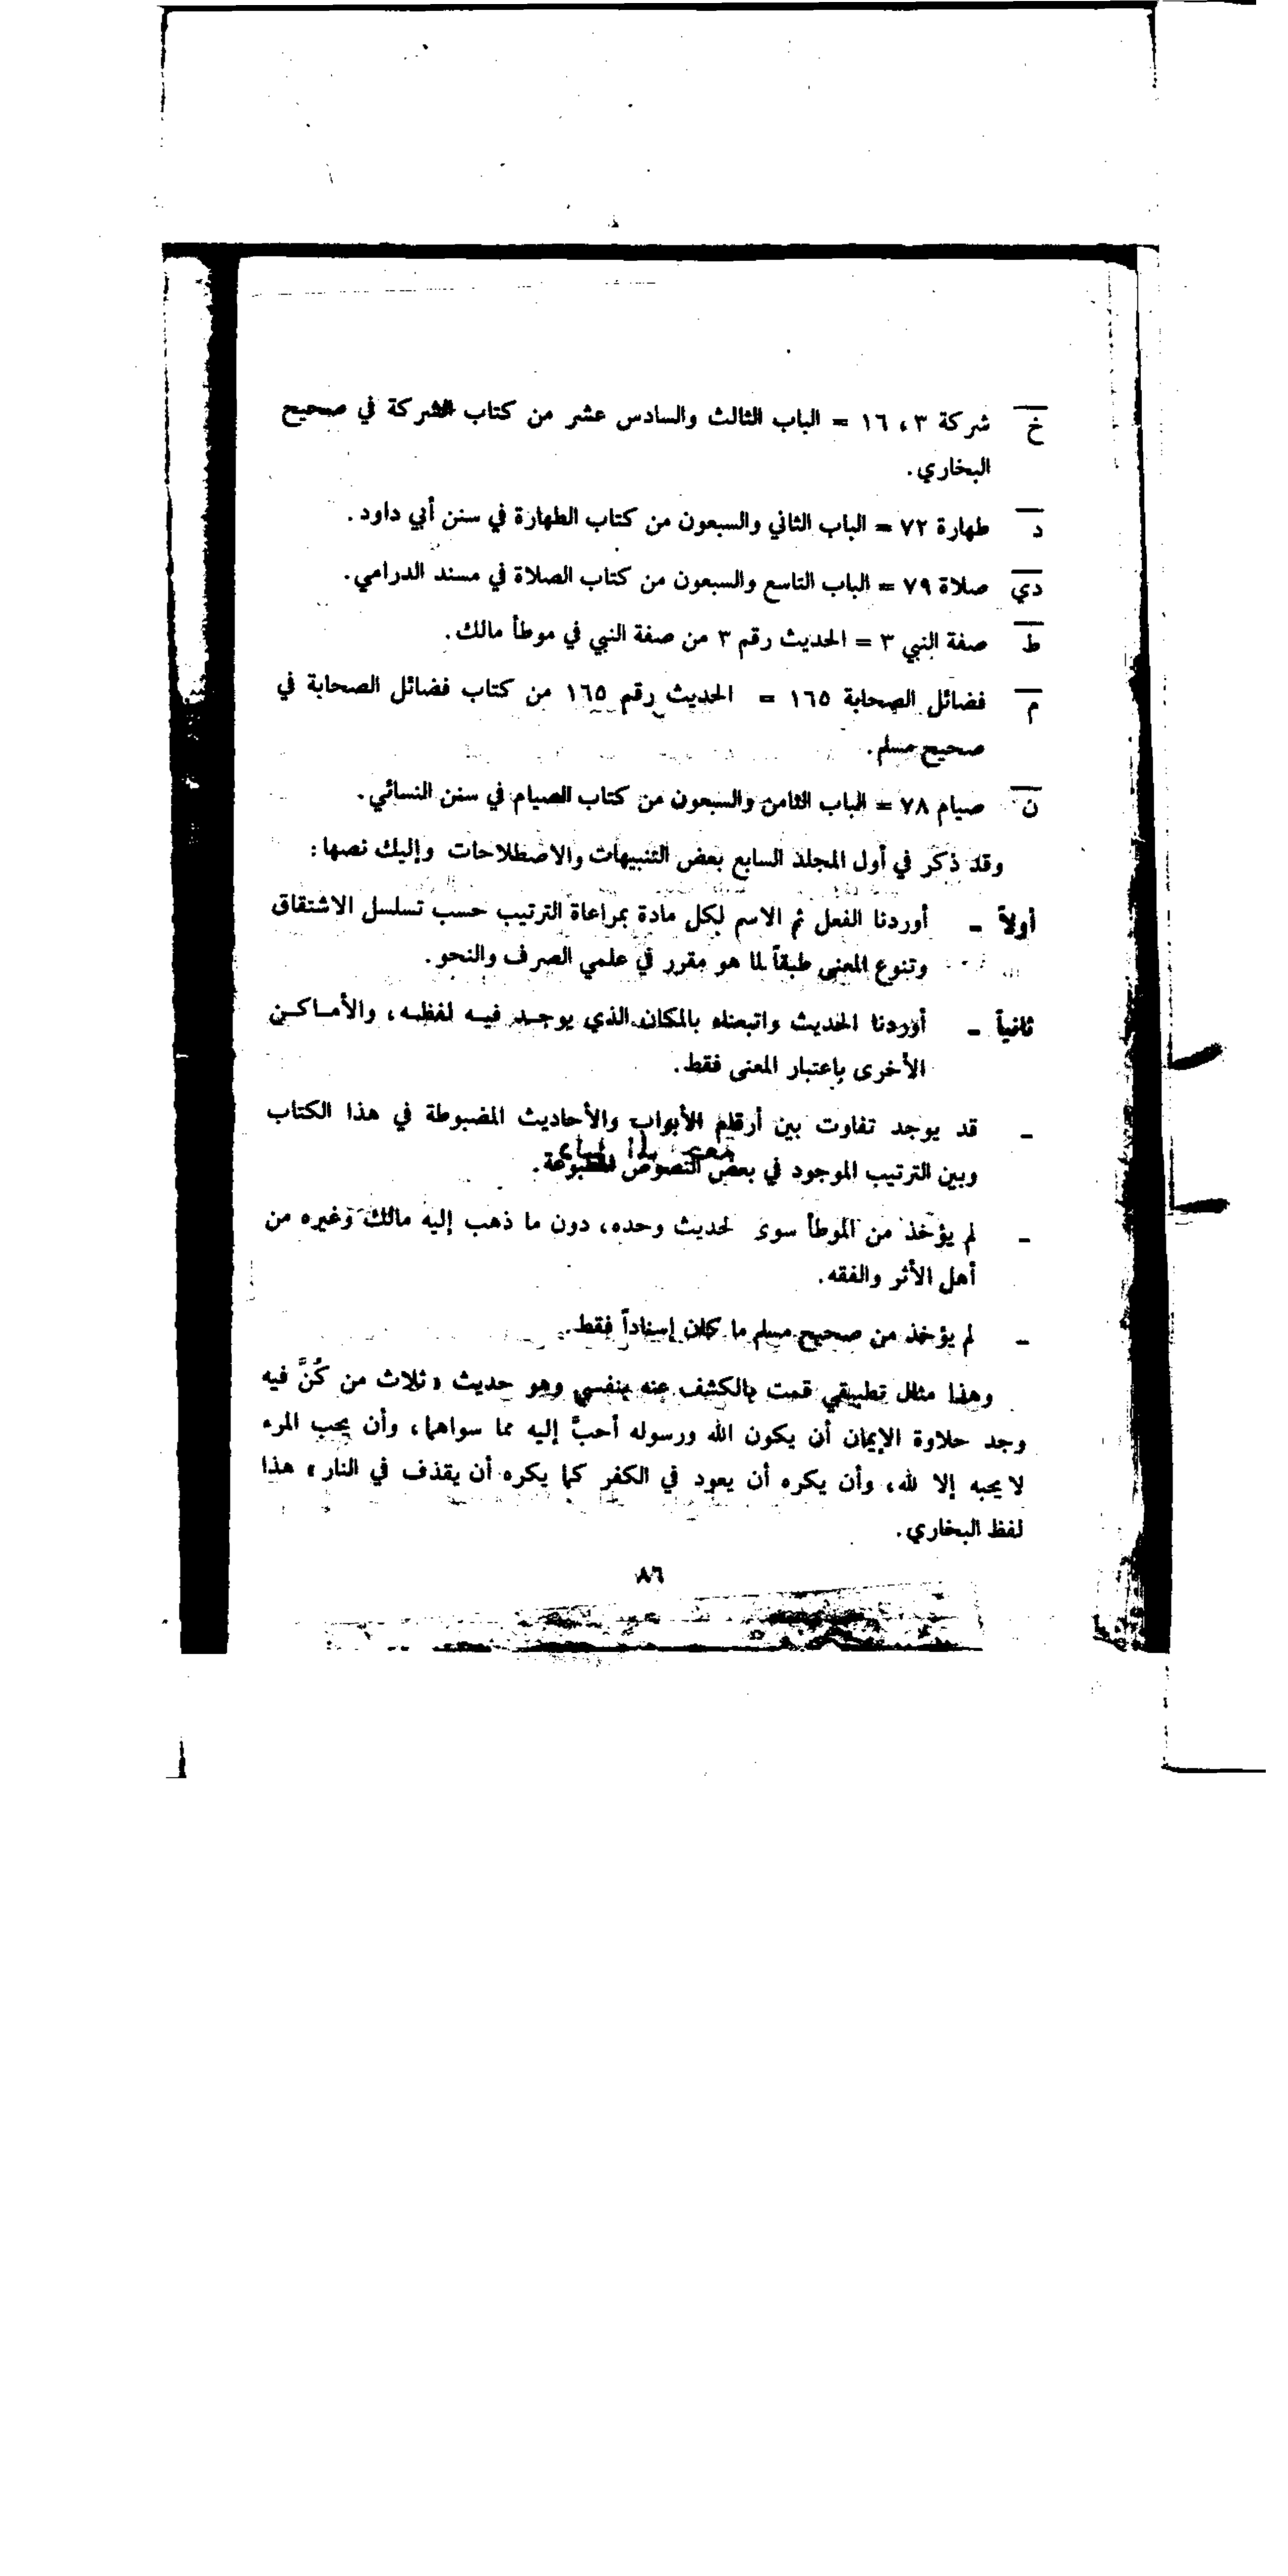 خ شركة ٣ ، ١٦ = الباب الثالث والسادس عشر من كتاب الشركة في صحيح
البخاري.
د طهارة ٧٢ = الباب الثاني والسبعون من كتاب الطهارة في سنن أبي داود.
دي صلاة ٧٩ = الباب التاسع والسبعون من كتاب الصلاة في مسند الدرامي.
ط صفة النبي ٣ = الحديث رقم ٣ من صفة النبي في موطأ مالك.
م فضائل الصحابة ١٦٥ = الحديث رقم ١٦٥ من كتاب فضائل الصحابة في
صحيح مسلم.
ن صيام ٧٨ = الباب الثامن والسبعون من كتاب الصيام في سنن النسائي.
وقد ذكر في أول المجلد السابع بعض التنبيهات والاصطلاحات وإليك نصها:
أولاً - أوردنا الفعل ثم الاسم لكل مادة بمراعاة الترتيب حسب تسلسل الاشتقاق
وتنوع المعنى طبقاً لما هو مقرر في علمي الصرف والنحو.
ثانياً - أوردنا الحديث واتبعناه بالمكان الذي يوجد فيه لفظه، والأماكن
الأخرى بإعتبار المعنى فقط.
- قد يوجد تفاوت بين أرقام الأبواب والأحاديث المضبوطة في هذا الكتاب
وبين الترتيب الموجود في بعض النصوص المطبوعة.
- لم يؤخذ من الموطأ سوى لحديث وحده، دون ما ذهب إليه مالك وغيره من
أهل الأثر والفقه.
- لم يؤخذ من صحيح مسلم ما كان إسناداً فقط.
وهذا مثال تطبيقي قمت بالكشف عنه بنفسي وهو حديث «ثلاث من كُنَّ فيه
وجد حلاوة الإيمان أن يكون الله ورسوله أحبَّ إليه مما سواهما، وأن يحب المرء
لا يحبه إلا لله، وأن يكره أن يعود في الكفر كما يكره أن يقذف في النار» هذا
لفظ البخاري.
٨٦